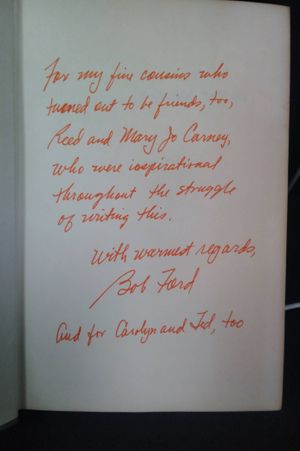 For my fine cousins who
turned out to be friends, too,
Reed and Mary Jo Carney,
who were inspirational
throughout the struggle
of writing this.
With warmest regards,
Bob Ford
And for Carolyn and Ted, too